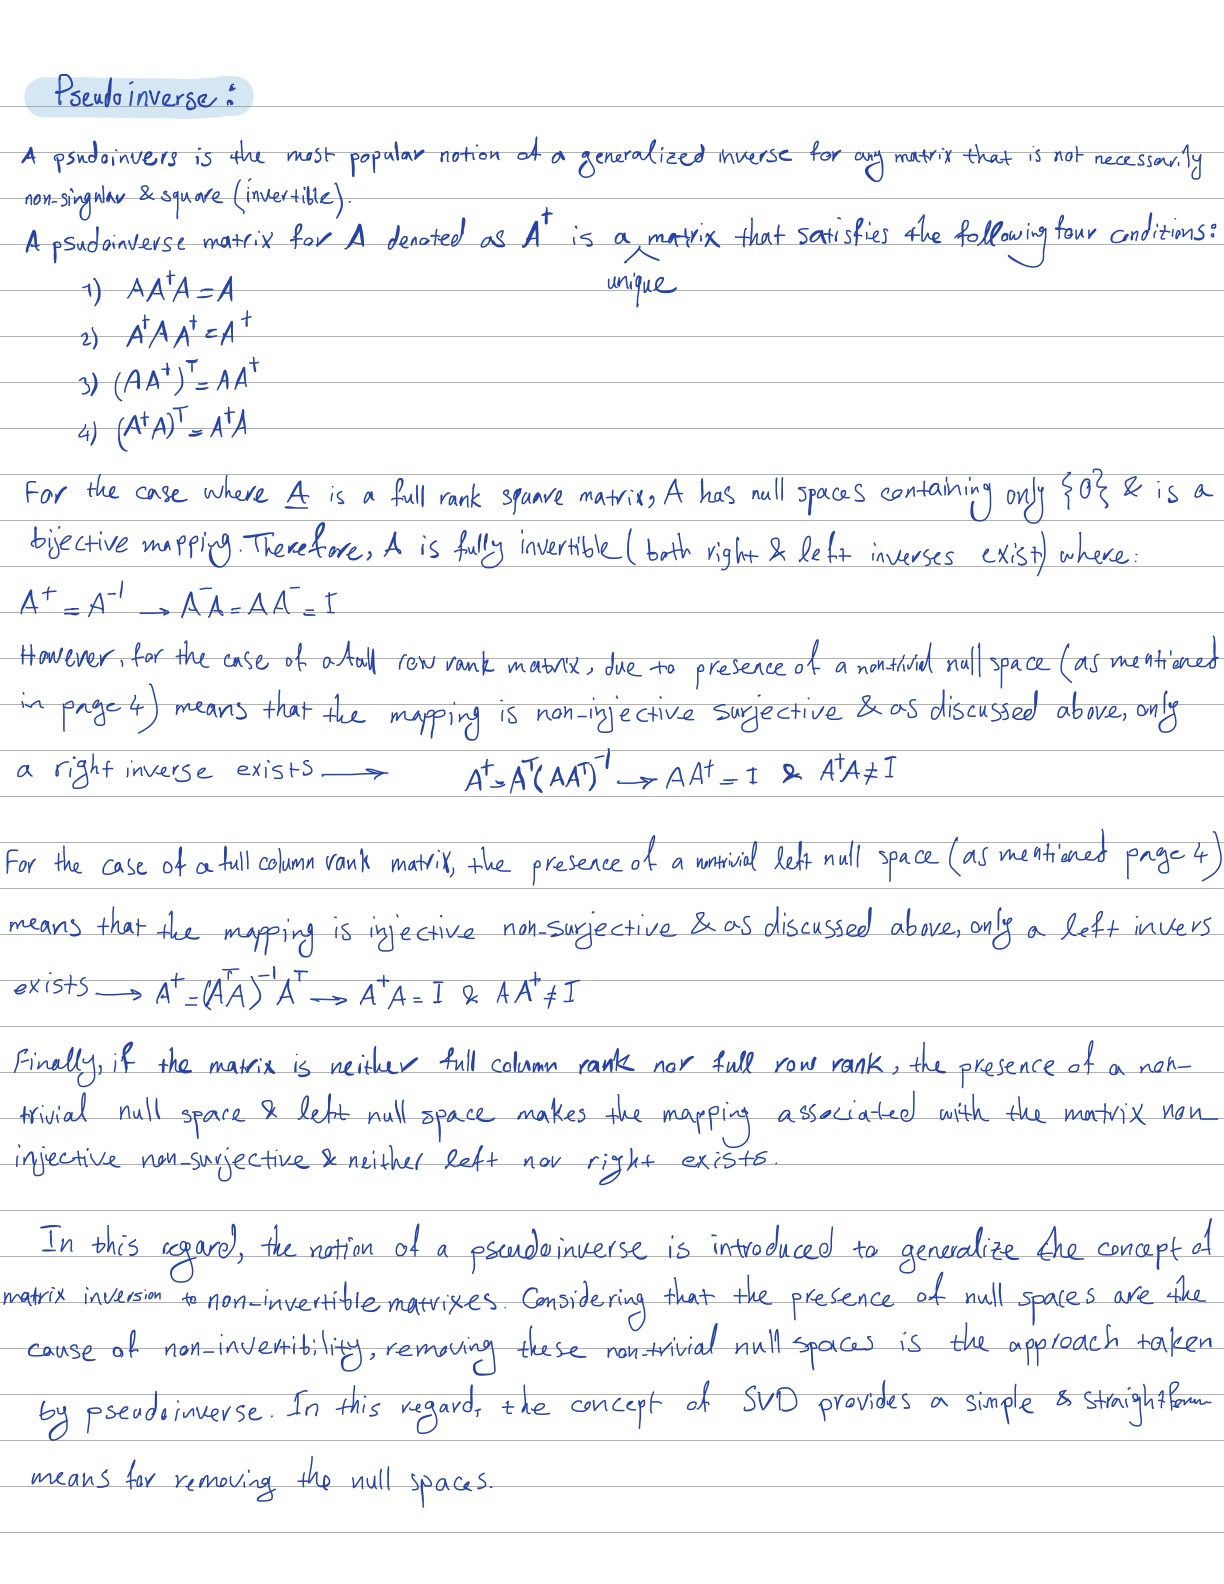 Pseudoinverse:
A psudoinvers is the most popular notion of a generalized inverse for any matrix that is not necessarily
non-singular & square (invertible).
A psudoinverse matrix for A denoted as A† is a matrix that satisfies the following four conditions:
unique
1) AA†A = A
2) A†AA† = A†
3) (AA†)ᵀ = AA†
4) (A†A)ᵀ = A†A
For the case where A is a full rank square matrix, A has null spaces containing only {0} & is a
bijective mapping. Therefore, A is fully invertible (both right & left inverses exist) where:
A⁺ = A⁻¹ → A⁻A = AA⁻ = I
However, for the case of a full row rank matrix, due to presence of a nontrivial null space (as mentioned
in page 4) means that the mapping is non-injective surjective & as discussed above, only
a right inverse exists → A† = Aᵀ(AAᵀ)⁻¹ → AA⁺ = I & A†A ≠ I
For the case of a full column rank matrix, the presence of a nontrivial left null space (as mentioned page 4)
means that the mapping is injective non-surjective & as discussed above, only a left invers
exists → A† = (AᵀA)⁻¹Aᵀ → A⁺A = I & AA⁺ ≠ I
Finally, if the matrix is neither full column rank nor full row rank, the presence of a non-
trivial null space & left null space makes the mapping associated with the matrix non
injective non-surjective & neither left nor right exists.
In this regard, the notion of a pseudoinverse is introduced to generalize the concept of
matrix inversion to non-invertible matrixes. Considering that the presence of null spaces are the
cause of non-invertibility, removing these non-trivial null spaces is the approach taken
by pseudoinverse. In this regard, the concept of SVD provides a simple &
means for removing the null spaces.